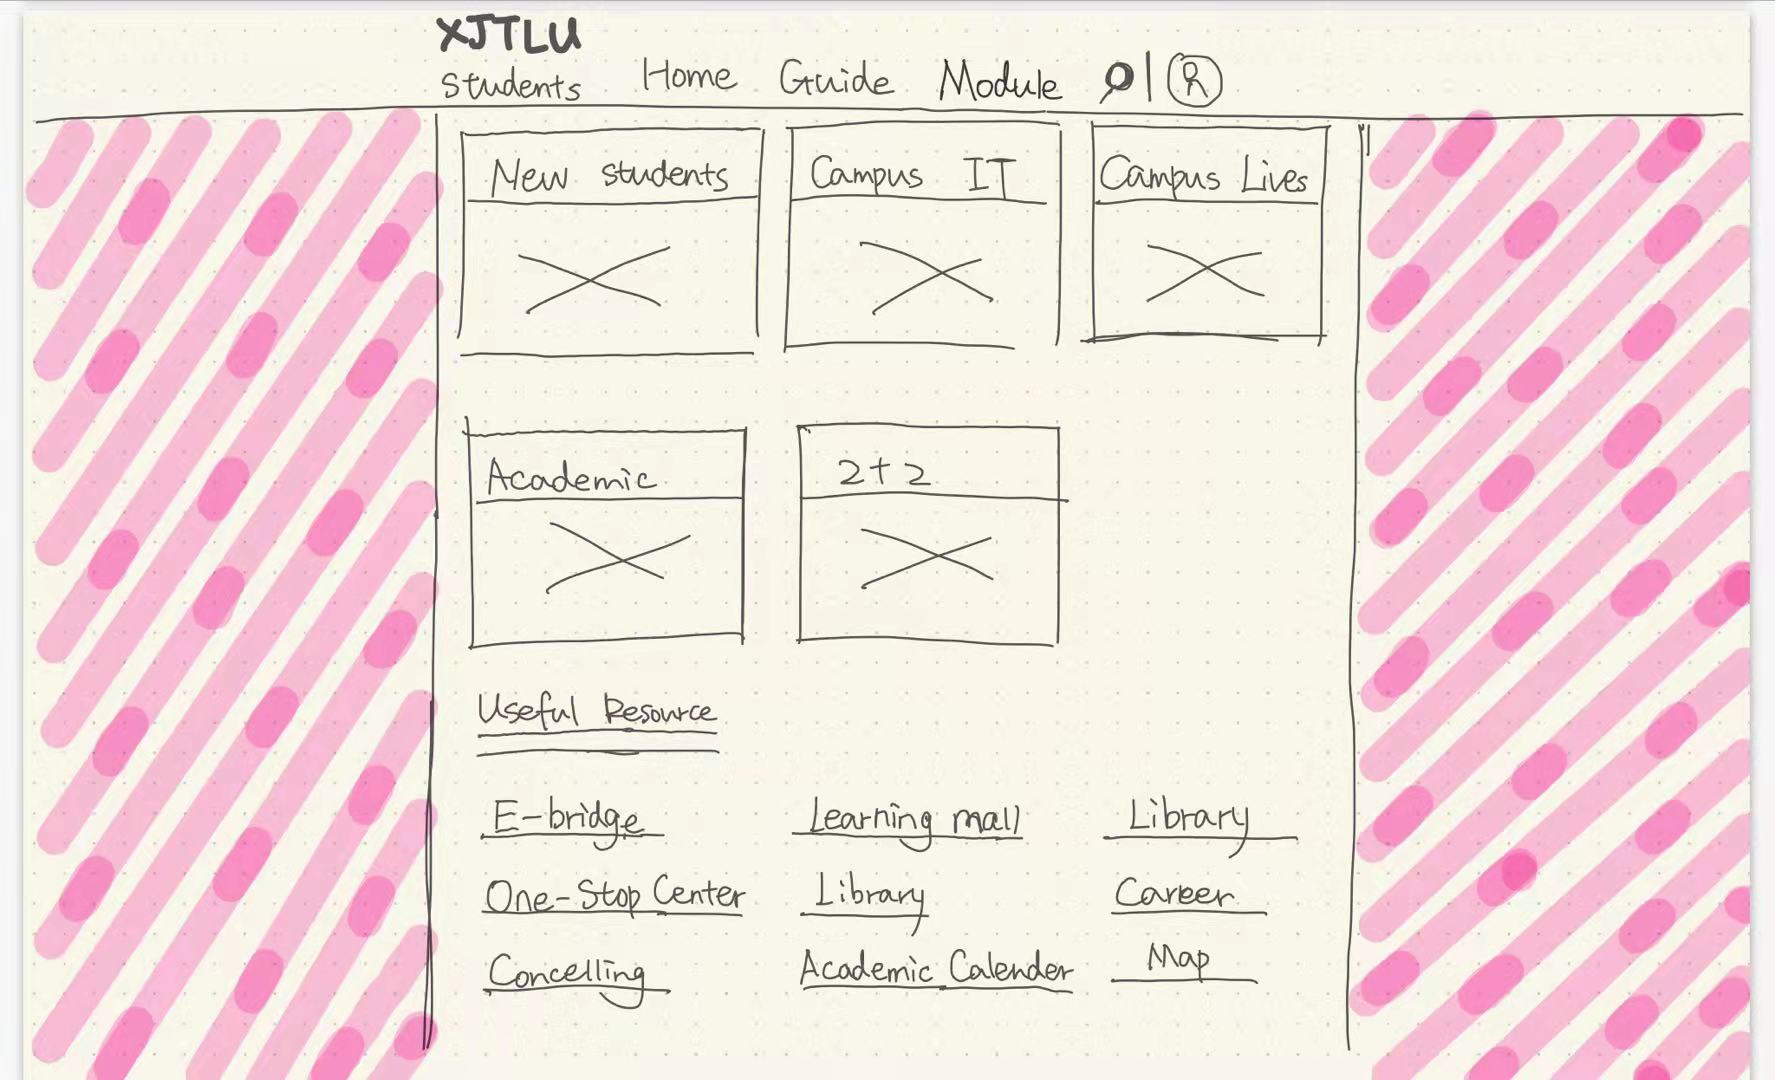 XJTLU
Students Home Guide Module R
New students Campus IT Campus Lives
Academic 2+2
Useful Resource
E-bridge Learning mall Library
One-Stop Center Library Career
Concelling Academic Calender Map